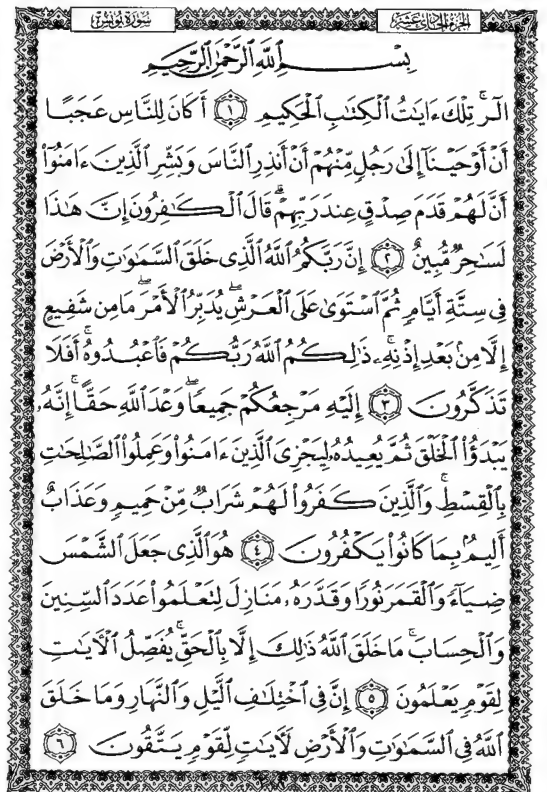 سُورَةُ يُونُسَ الجُزْءُ الحَادِي عَشَرَ
بِسْمِ ٱللَّهِ ٱلرَّحْمَٰنِ ٱلرَّحِيمِ
الٓرۚ تِلْكَ ءَايَٰتُ ٱلْكِتَٰبِ ٱلْحَكِيمِ ١ أَكَانَ لِلنَّاسِ عَجَبًا
أَنْ أَوْحَيْنَآ إِلَىٰ رَجُلٍ مِّنْهُمْ أَنْ أَنذِرِ ٱلنَّاسَ وَبَشِّرِ ٱلَّذِينَ ءَامَنُوٓا۟
أَنَّ لَهُمْ قَدَمَ صِدْقٍ عِندَ رَبِّهِمْۗ قَالَ ٱلْكَٰفِرُونَ إِنَّ هَٰذَا
لَسَٰحِرٌ مُّبِينٌ ٢ إِنَّ رَبَّكُمُ ٱللَّهُ ٱلَّذِى خَلَقَ ٱلسَّمَٰوَٰتِ وَٱلْأَرْضَ
فِى سِتَّةِ أَيَّامٍ ثُمَّ ٱسْتَوَىٰ عَلَى ٱلْعَرْشِۖ يُدَبِّرُ ٱلْأَمْرَۖ مَا مِن شَفِيعٍ
إِلَّا مِنۢ بَعْدِ إِذْنِهِۦۚ ذَٰلِكُمُ ٱللَّهُ رَبُّكُمْ فَٱعْبُدُوهُۚ أَفَلَا
تَذَكَّرُونَ ٣ إِلَيْهِ مَرْجِعُكُمْ جَمِيعًاۖ وَعْدَ ٱللَّهِ حَقًّاۚ إِنَّهُۥ
يَبْدَؤُا۟ ٱلْخَلْقَ ثُمَّ يُعِيدُهُۥ لِيَجْزِىَ ٱلَّذِينَ ءَامَنُوا۟ وَعَمِلُوا۟ ٱلصَّٰلِحَٰتِ
بِٱلْقِسْطِۚ وَٱلَّذِينَ كَفَرُوا۟ لَهُمْ شَرَابٌ مِّنْ حَمِيمٍ وَعَذَابٌ
أَلِيمٌۢ بِمَا كَانُوا۟ يَكْفُرُونَ ٤ هُوَ ٱلَّذِى جَعَلَ ٱلشَّمْسَ
ضِيَآءً وَٱلْقَمَرَ نُورًا وَقَدَّرَهُۥ مَنَازِلَ لِتَعْلَمُوا۟ عَدَدَ ٱلسِّنِينَ
وَٱلْحِسَابَۚ مَا خَلَقَ ٱللَّهُ ذَٰلِكَ إِلَّا بِٱلْحَقِّۚ يُفَصِّلُ ٱلْءَايَٰتِ
لِقَوْمٍ يَعْلَمُونَ ٥ إِنَّ فِى ٱخْتِلَٰفِ ٱلَّيْلِ وَٱلنَّهَارِ وَمَا خَلَقَ
ٱللَّهُ فِى ٱلسَّمَٰوَٰتِ وَٱلْأَرْضِ لَءَايَٰتٍ لِّقَوْمٍ يَتَّقُونَ ٦